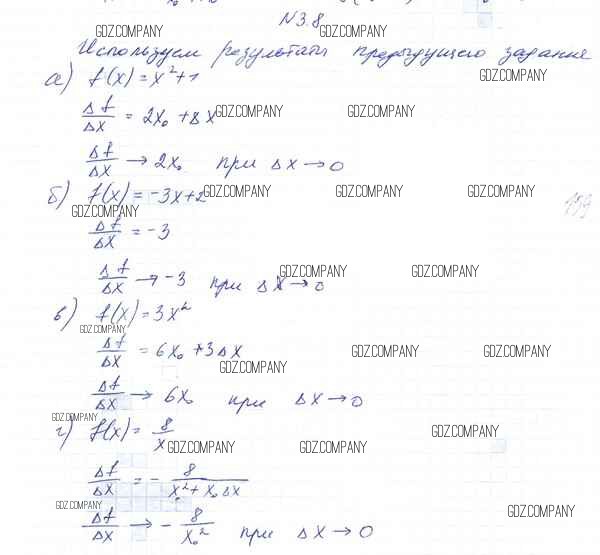 N3.8
GDZ.COMPANY GDZ.COMPANY
Используем результаты предыдущего задание
а) f(x) = x²+1 GDZ.COMPANY
Δf/Δx = 2x₀ + Δx GDZ.COMPANY GDZ.COMPANY
Δf/Δx → 2x₀ при Δx → 0
б) f(x) = -3x+2 GDZ.COMPANY GDZ.COMPANY GDZ.COMPANY
GDZ.COMPANY
Δf/Δx = -3
Δf/Δx → -3 при Δx → 0 GDZ.COMPANY GDZ.COMPANY
в) f(x) = 3x²
GDZ.COMPANY
Δf/Δx = 6x₀ + 3Δx GDZ.COMPANY GDZ.COMPANY
GDZ.COMPANY
Δf/Δx → 6x₀ при Δx → 0
GDZ.COMPANY
г) f(x) = 8/x GDZ.COMPANY GDZ.COMPANY GDZ.COMPANY
Δf/Δx = - 8/(x₀² + x₀Δx)
GDZ.COMPANY GDZ.COMPANY
Δf/Δx → - 8/x₀² при Δx → 0